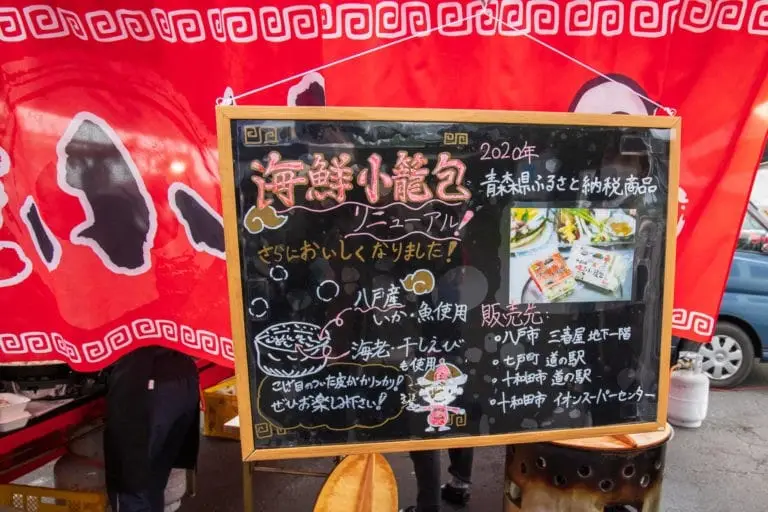 海鮮小籠包
リニューアル!
さらにおいしくなりました!
八戸産
いか・魚使用
海老・干しえび
も使用!
こげ目のついた皮がカリッカリ!
ぜひお楽しみ下さい!
2020年
青森県ふるさと納税商品
販売先:
○八戸市 三春屋 地下一階
○七戸町 道の駅
○十和田市 道の駅
○十和田市 イオンスーパーセンター